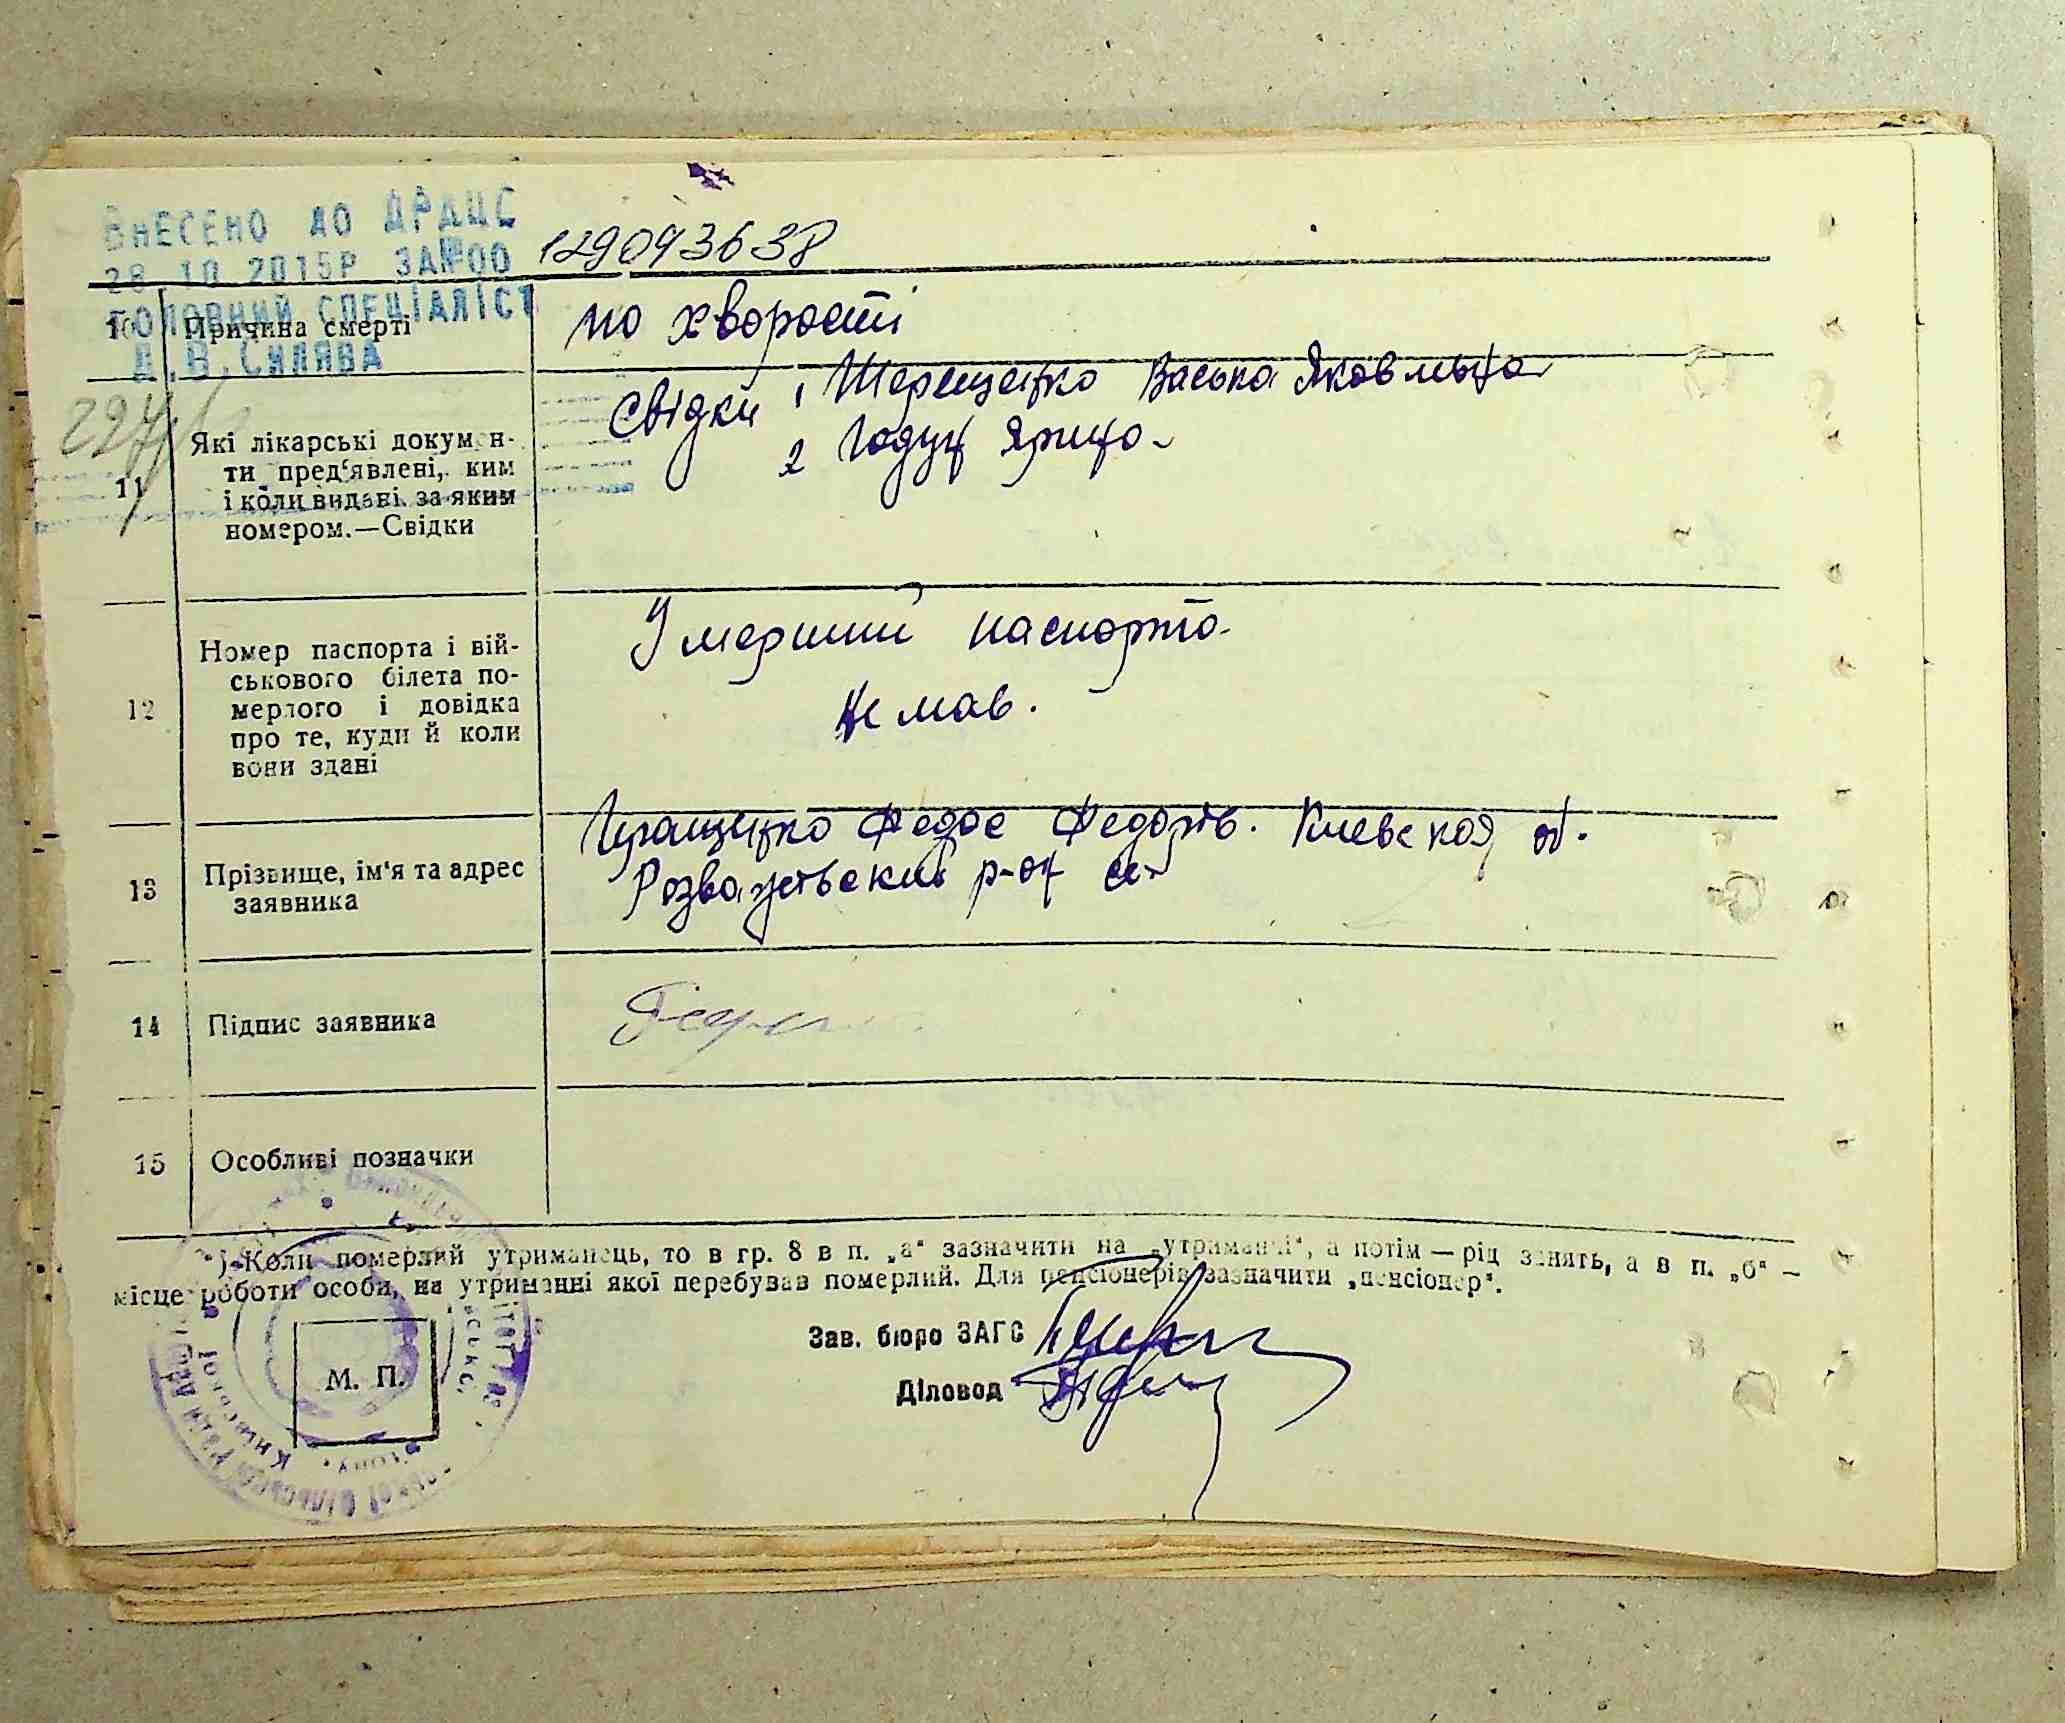 ВНЕСЕНО ДО ДРАЦС
28 10 2015Р ЗА№00 129093638
ГОЛОВНИЙ СПЕЦІАЛІСТ
10 Причина смерті по хворості
Д.В.СИЛЯВА
свідки 1 Терещенко Васька Яковлевна
2 Годун
11 Які лікарські докумен-
ти пред‘явлені, ким
і коли видані за яким
номером.—Свідки
Умерший паспорта
не мав.
12 Номер паспорта і вій-
ськового білета по-
мерлого і довідка
про те, куди й коли
вони здані
Федос Федорів. Киевская об.
Розважевский р-он
13 Прізвище, ім'я та адрес
заявника
14 Підпис заявника
15 Особливі позначки
*) Коли померлий утриманець, то в гр. 8 в п. „а“ зазначити на „утриманні“, а потім — рід занять, а в п. „б“ —
місце роботи особи, на утриманні якої перебував померлий. Для пенсіонерів зазначити „пенсіонер“.
Зав. бюро ЗАГС
М. П.
Діловод